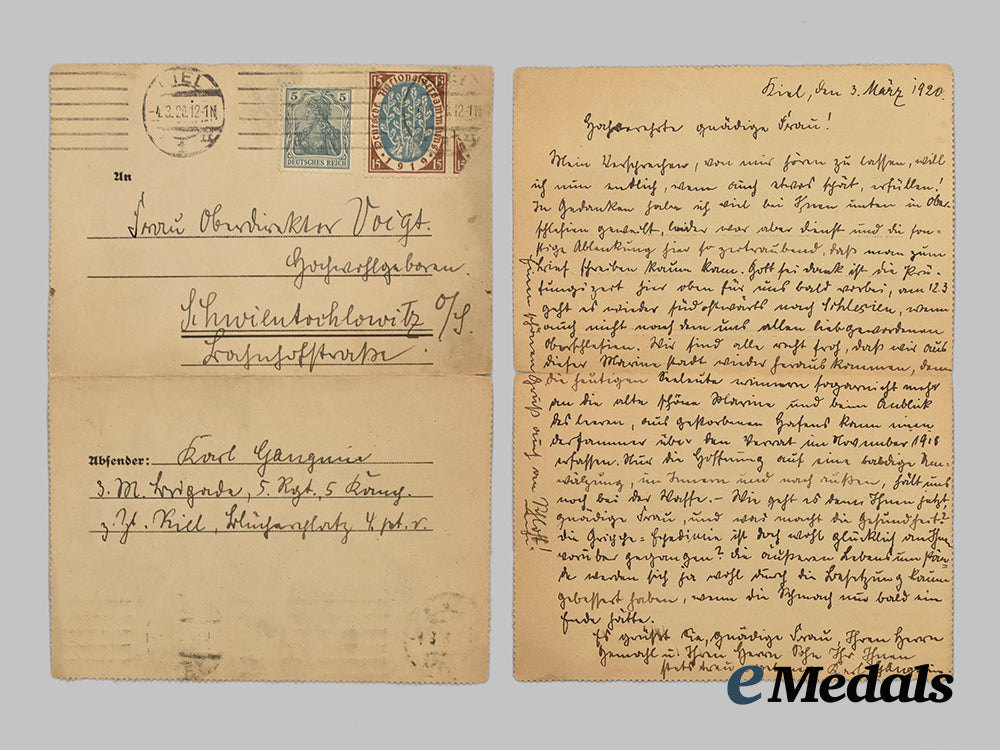 KIEL
-4.3.20.12-1N
5 5
DEUTSCHES REICH
15 15
Deutsche Nationalversammlung
15 1919 15
12-1N
An
Frau Oberdirektor Voigt.
Hochwohlgeboren.
Schwientochlowitz O/S.
Bahnhofstraße.
Absender: Karl
3. M. Brigade, 5. Rgt., 5 Komp.
z. Zt. Kiel, Blücherplatz 4. pt. r.
Kiel, den 3. März 1920.
Hochverehrte gnädige Frau!
Mein Versprechen, von mir hören zu lassen, will
ich nun entlich, wenn auch etwas spät, erfüllen!
In Gedanken habe ich viel bei Ihnen unten in Ober-
schlesien geweilt, leider war aber Dienst und die son-
stige Ablenkung hier so zeitraubend, daß man zum
Brief schreiben kaum kam. Gott sei dank ist die Prü-
fungszeit hier oben für uns bald vorbei, am 12.3
geht es wieder südostwärts nach Schlesien, wenn
auch nicht nach dem uns allen liebgewordenen
Oberschlesien. Wir sind alle recht froh, daß wir aus
dieser Marine stadt wieder heraus kommen, denn
die heutigen Seeleute erinnern sogarnicht mehr
an die alte schöne Marine und beim Anblick
des leeren, ausgestorbenen Hafens kann einen
der Jammer über den Verrat im November 1918
erfassen. Nur die Hoffnung auf eine baldige Um-
wälzung, im Innern und nach außen, hält uns
noch bei der Waffe. – Wie geht es denn Ihnen jetzt,
gnädige Frau, und was macht die Gesundheit?
Die Grippe-Epedimie ist doch wohl glücklich an Ihnen
vorüber gegangen? Die äußeren Lebensumstän-
de werden sich ja wohl durch die Besetzung kaum
gebessert haben, wenn die Schmach nur bald ein
Ende hätte.
Es grüßt Sie, gnädige Frau, Ihren Herrn
Gemahl u. Ihren Herrn Sohn Ihr Ihnen
stets treu Karl
Einen schönen Gruß auch an
eMedals